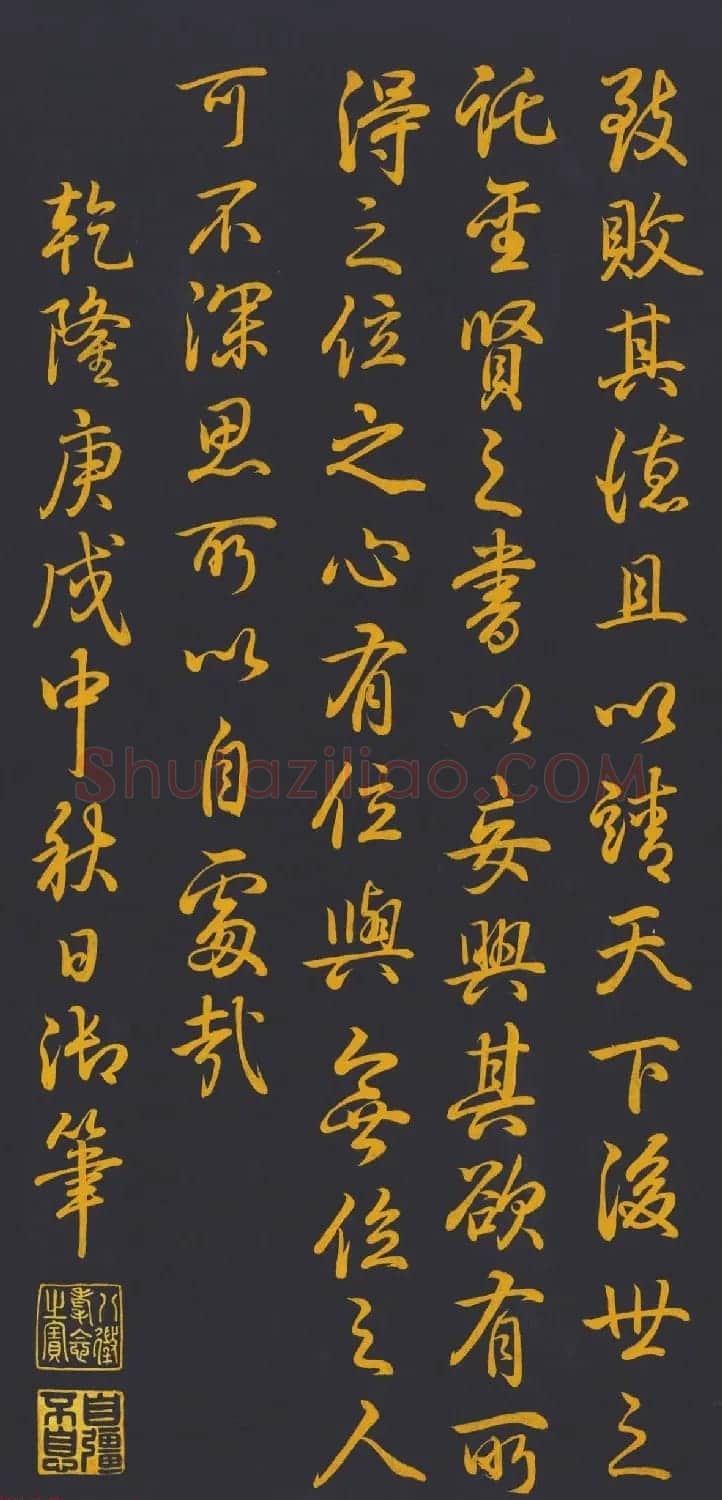 致敗其德且以請天下後世之
託聖賢之書以妄興其欲有所
得之位之心有位與無位之人
可不深思所以自處哉
乾隆庚戌中秋日御筆
八徵耄念之寶
自彊不息
Shufaziliao.COM